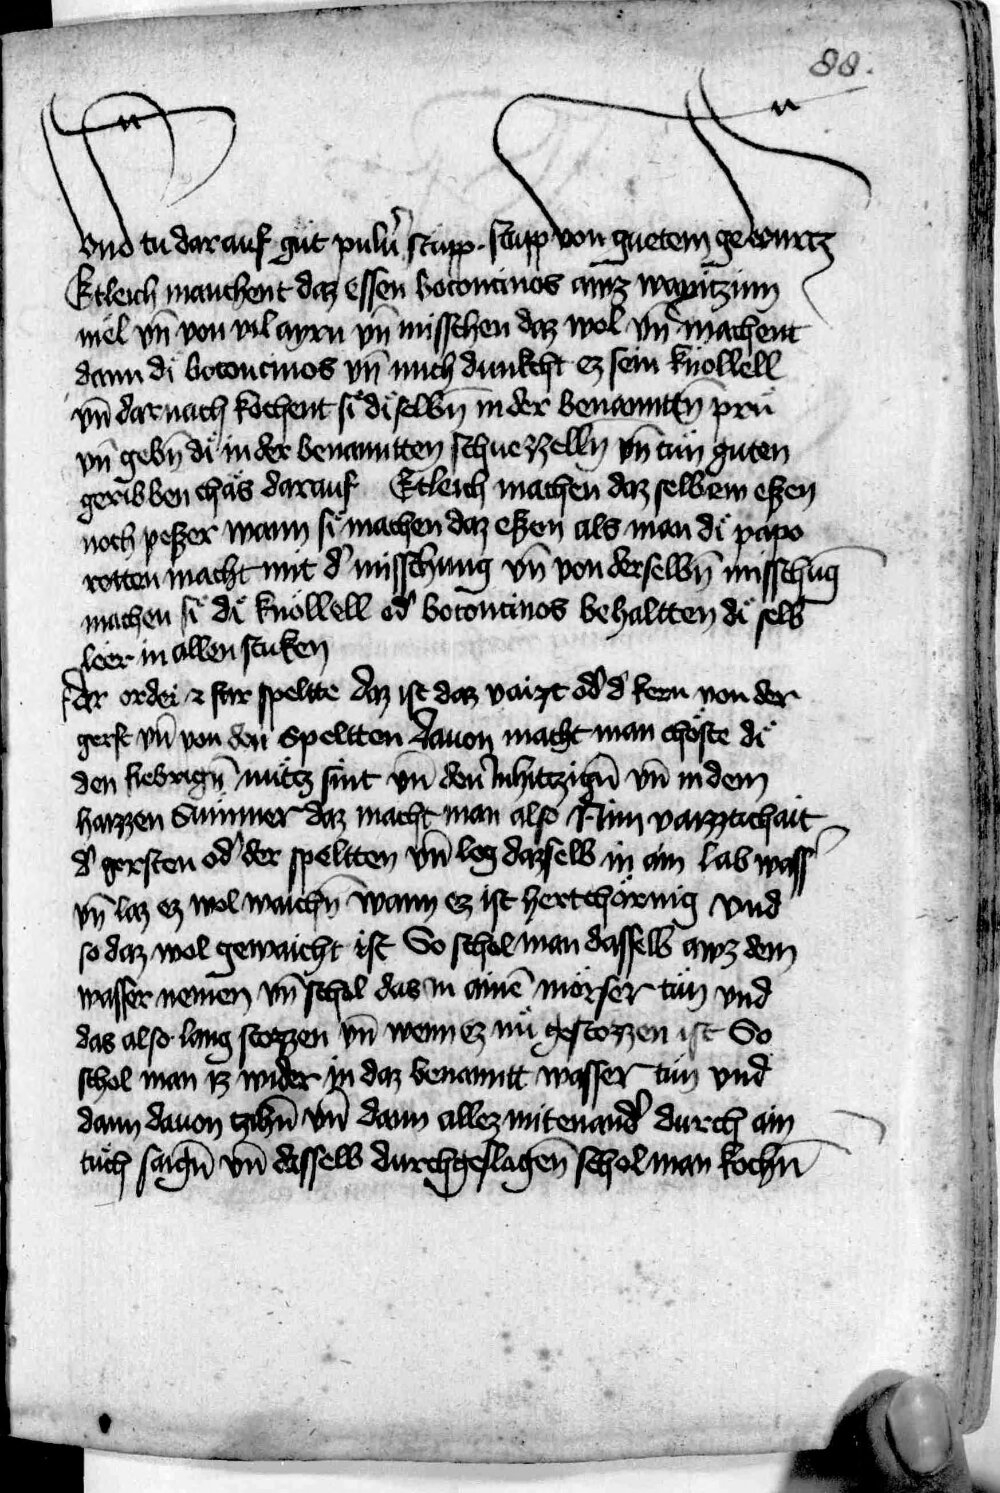 88.
Und tu darauf gůt pulu᷑ stupp. stupp von guetem gewurtz
Etleich mauchent daz essen bocontinos awz waytzinn
mel vn̄ von vil ayrn vn̄ misschen daz wol vn̄ machent
dann di̊ bocontinos vn̄ mich dunkcht ez sein knöllell
vn̄ darnach kochent si̊ di̊ selbn̄ in der benanntn̄ prů
vn̄ gebn̄ di̊ in der benanntten schuezzelln vn̄ tůn guten
geribben chäs darauf Etleich machen daz selb em eßen
noch peßer wann si̊ machen daz eßen als man di̊ papo
rotten macht mit d᷑ misschung vn̄ von derselbn̄ misschūg
machen si̊ di̊ knöllell od᷑ bocontinos behaltten di̊ selb
leer in allen stuken
der ordei ⁊ far speltte daz ist daz vaizt od᷑ d᷑ kern von der
gerst vn̄ von den speltten dauon macht man chöste di̊
den fiebrign̄ nůtz sint vn̄ den̄ inhitzign̄ vn̄ in dem
hazzen Summer daz macht man also Nim vaizztichait
d᷑ gersten od᷑ der speltten vn̄ leg dazselb in ain lab wass᷑
vn̄ laz ez wol waichn̄ wann ez ist hertchörnig vnd
so daz wol gewaicht ist So schol man dasselb awz dem
wasser nemen vn̄ schol das in ainē mörser tůn vnd
das also lang stozzen vn̄ wenn ez nů gestozzen ist So
schol man iz wider in daz benanntt wasser tůn vnd
dann dauon tzihn̄ vn̄ dann allez mitenand᷑ durch ain
tůch saign̄ vn̄ dasselb durchgeslagen̄ schol man kochn̄